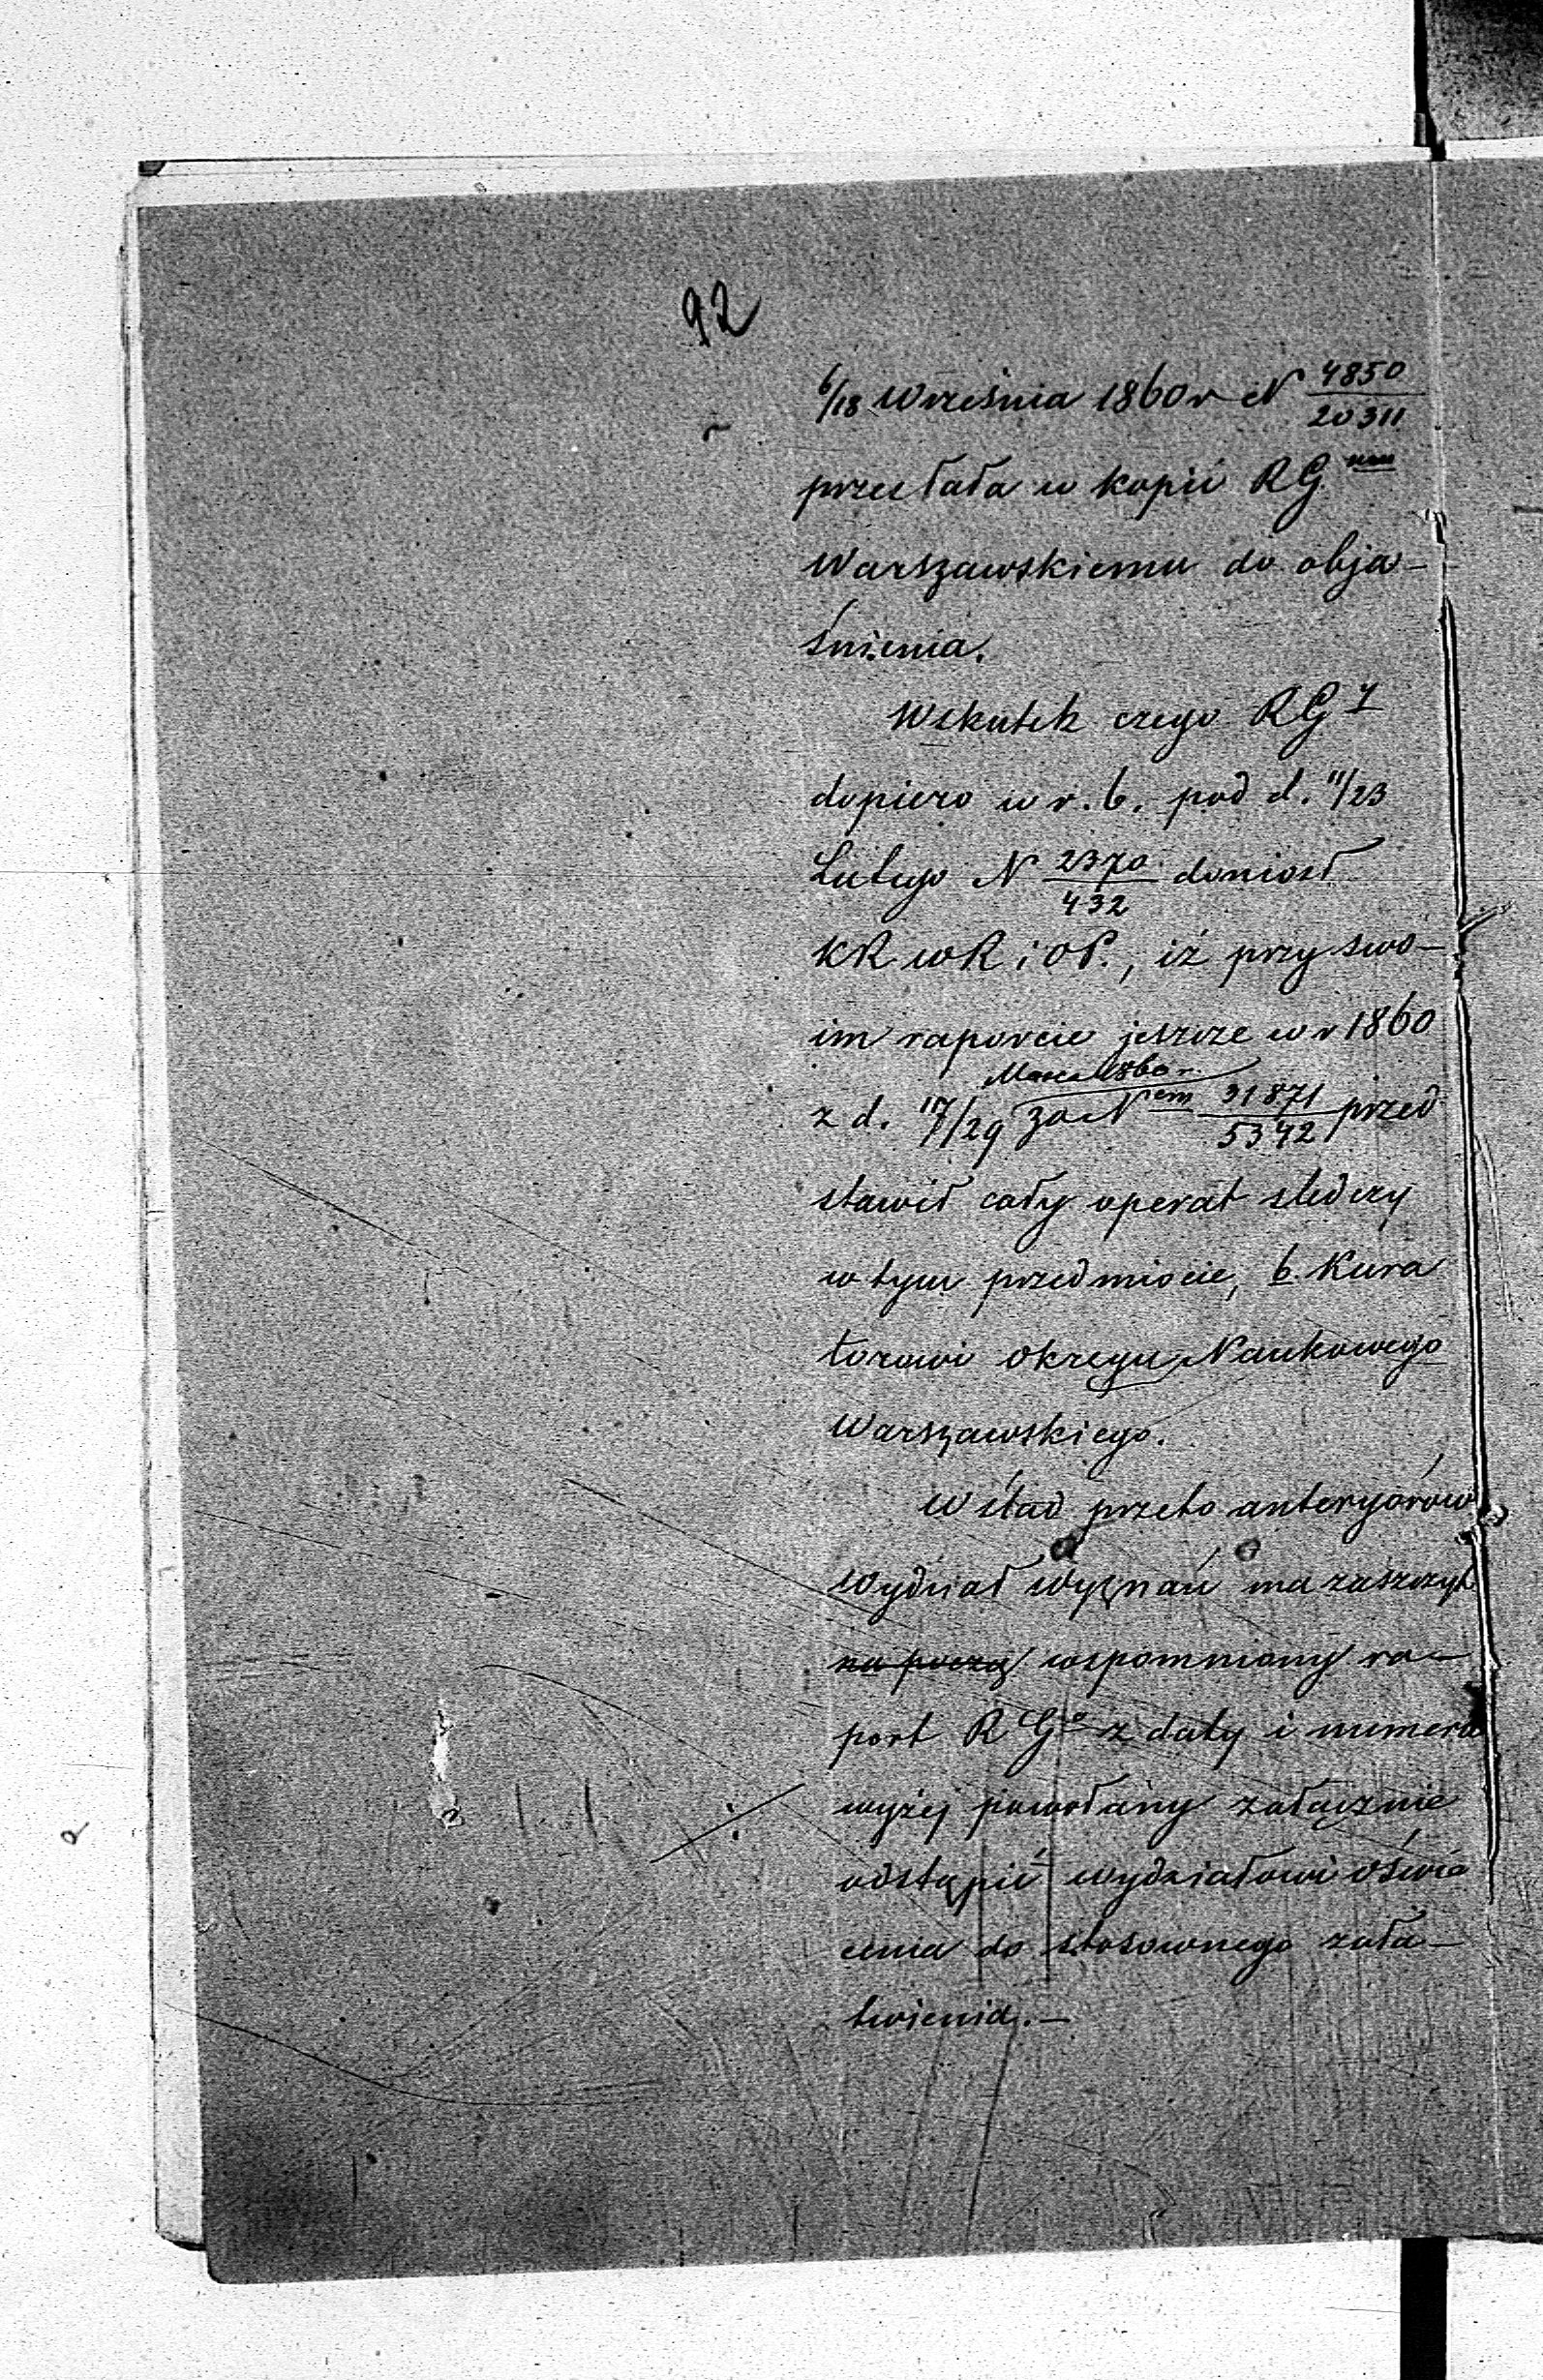 92
6/18 Września 1860 r N 4850/20311
przesłała w kopii RG nmu
Warszawskiemu do obja-
śnienia.
Wskutek czego RG y
dopiero w r. b. pod d. 11/23
Lutego N 2370/432 doniosł
KR WR i OP., iż przy swo-
im raporcie jeszcze w r 1860
Marca 1860 r.
z d. 17/29 za N em 31871/5342 przed
stawił cały operat śledczy
w tym przedmiocie, b. Kura
torowi Okręgu Naukowego
Warszawskiego.
W ślad przeto anteryorów
Wydział Wyznań ma zaszczyt
wspomniony ra-
port R G o z daty i numeru
wyżej powołany załącznie
odstąpić wydziałowi oświe
cenia do stosownego zała-
twienia.-